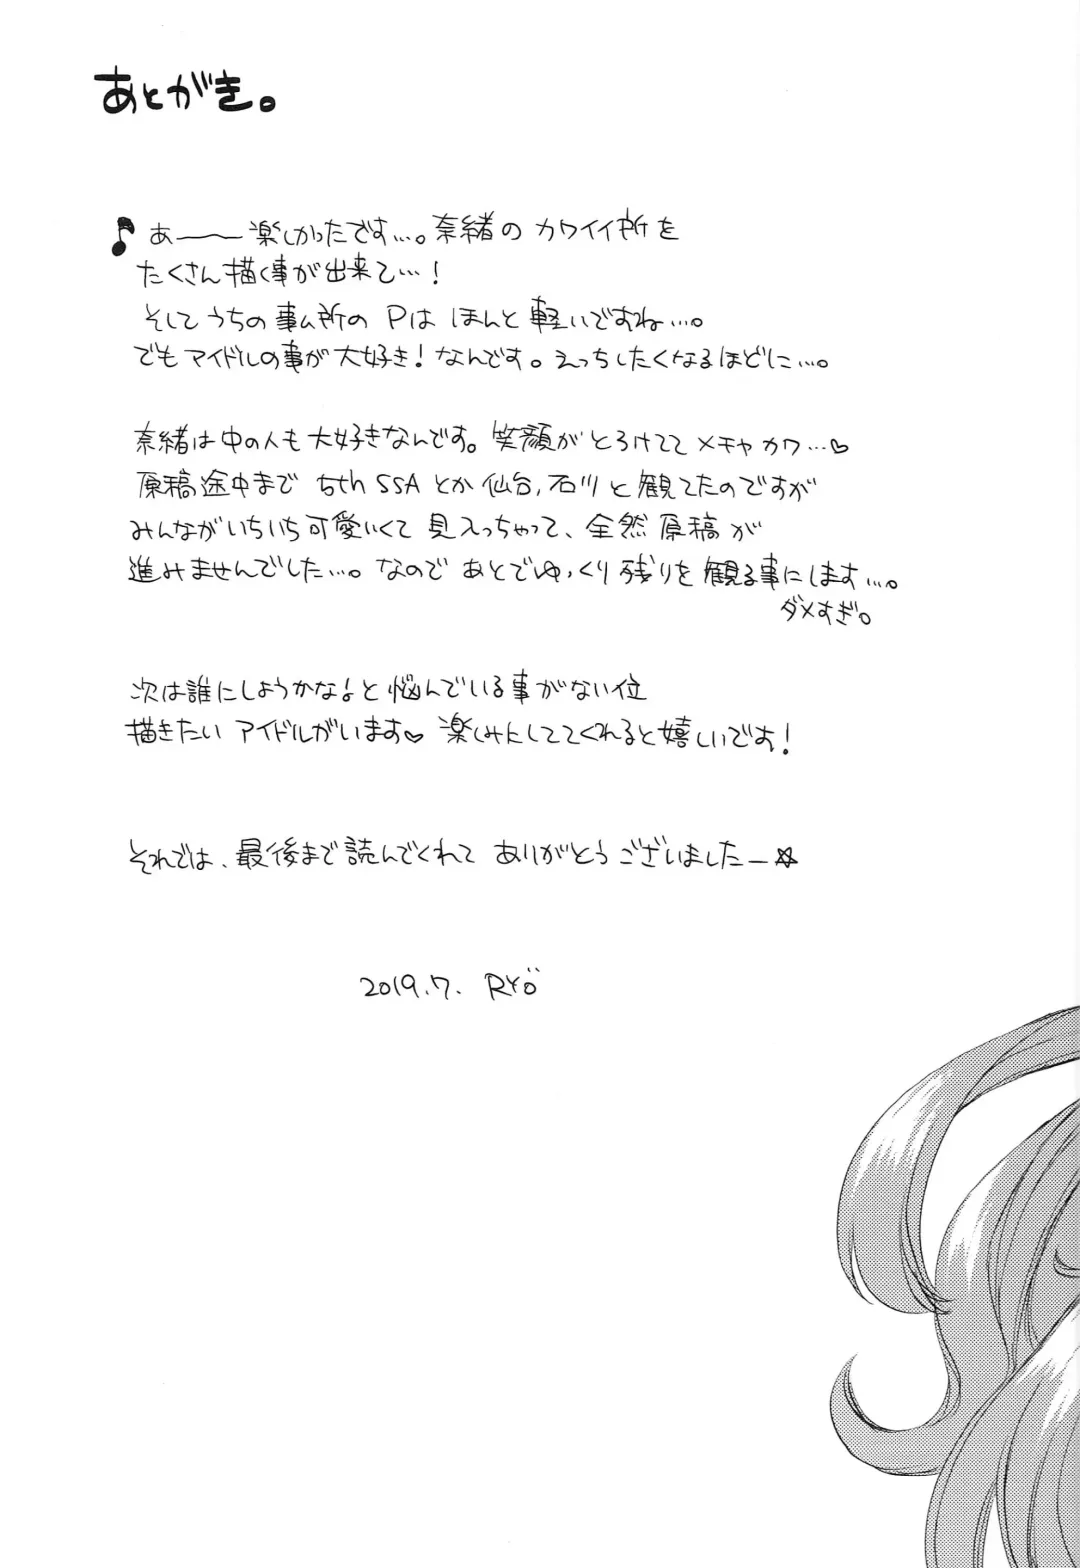 あとがき。
♪ あ〜〜楽しかったです…。奈緒のカワイイ所を
たくさん描く事が出来て…！
そしてうちの事ム所のPはほんと軽いですね…。
でもアイドルの事が大好き！なんです。えっちしたくなるほどに…。
奈緒は中の人も大好きなんです。笑顔がとろけててメチャカワ…♡
原稿途中まで5th SSAとか仙台,石川と観てたのですが
みんながいちいち可愛いくて見入っちゃって、全然原稿が
進みませんでした…。なのであとでゆっくり残りを観る事にします…。
ダメすぎ。
次は誰にしようかな♪と悩んでいる事がない位
描きたいアイドルがいます♡楽しみにしててくれると嬉しいです！
それでは、最後まで読んでくれてありがとうございましたー☆
2019.7. RYÖ